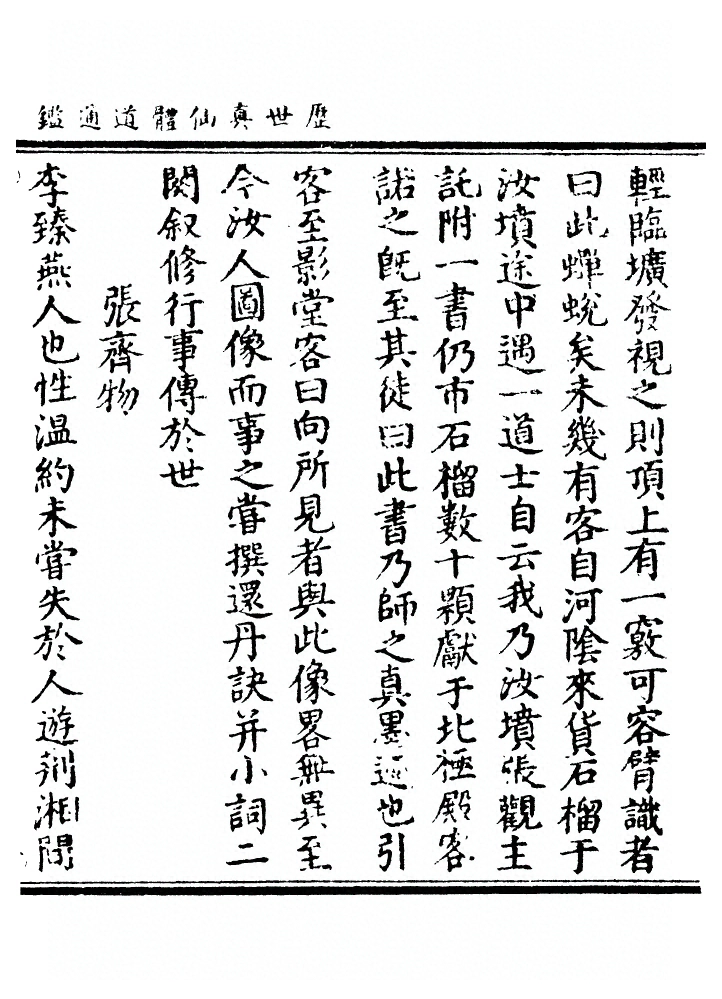 歷世真仙體道通鑑
輕臨壙發視之則頂上有一竅可容臂識者
曰此蟬蛻矣未幾有客自河陰來貨石榴于
汝墳途中遇一道士自云我乃汝墳張觀主
託附一書仍市石榴數十顆獻于北極殿客
諾之既至其徒曰此書乃師之真墨迹也引
客至影堂客曰向所見者與此像畧無異至
今汝人圖像而事之嘗撰還丹訣并小詞二
闋叙修行事傳於世
張齊物
李臻燕人也性溫約未嘗失於人遊荊湘間